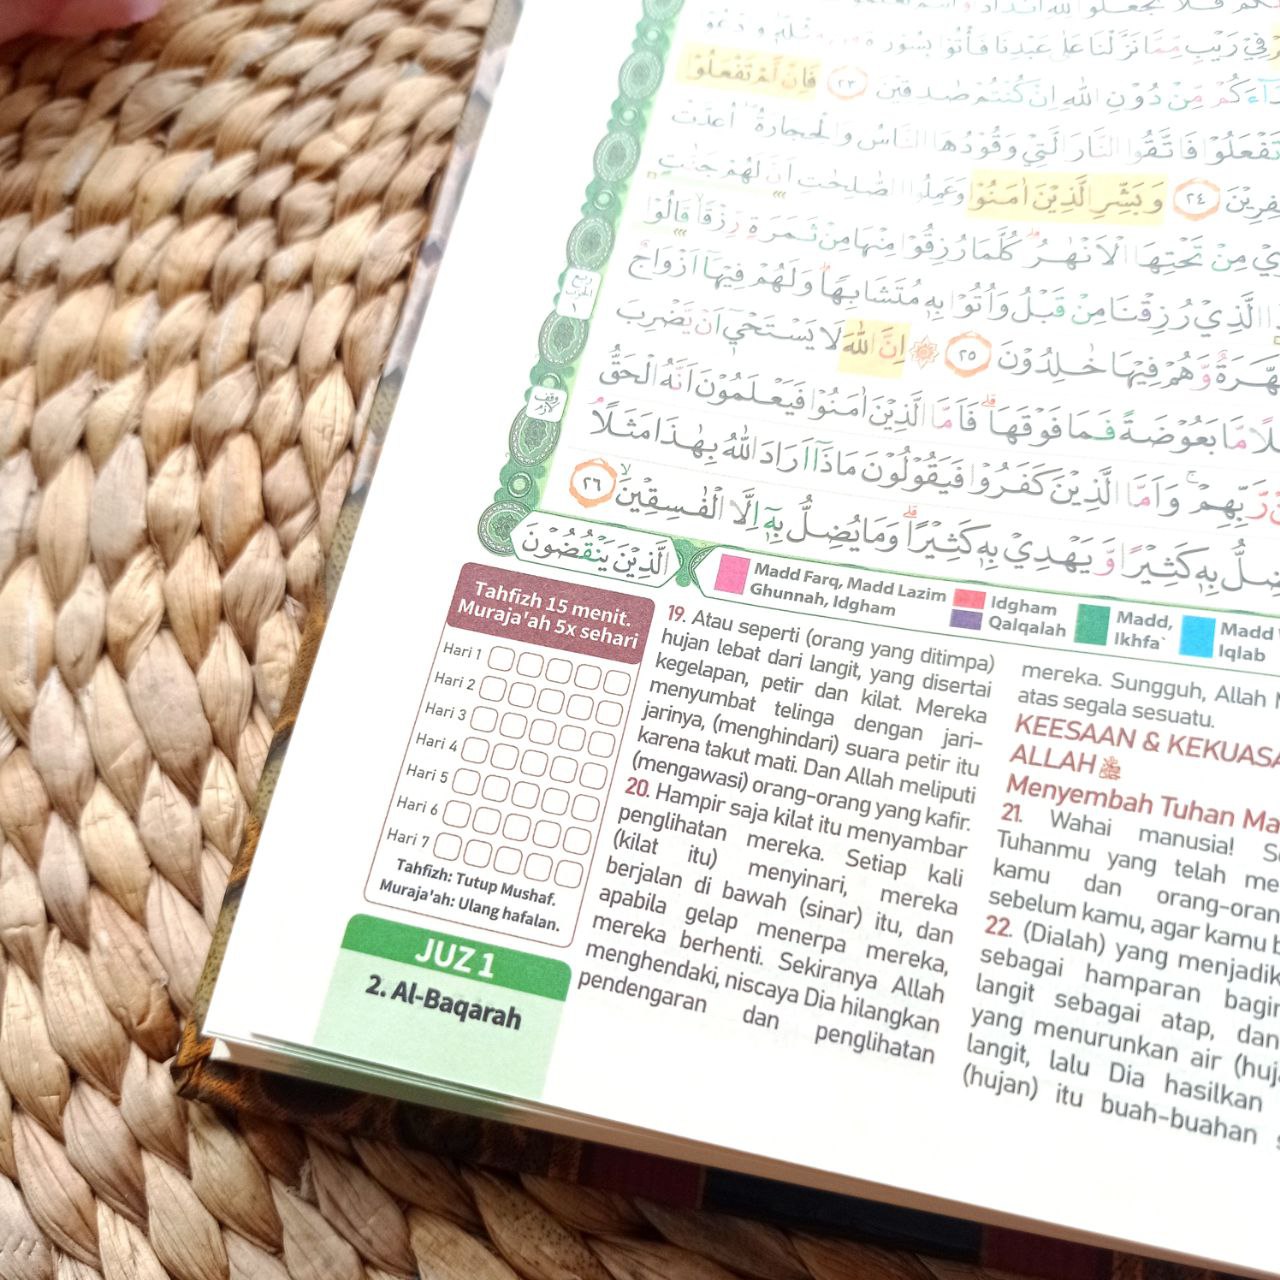 فِيْ رَيْبٍ مِّمَّا نَزَّلْنَا عَلٰى عَبْدِنَا فَأْتُوْا بِسُوْرَةٍ مِّنْ مِّثْلِهٖ وَادْعُوْا
مِّنْ دُوْنِ اللّٰهِ اِنْ كُنْتُمْ صٰدِقِيْنَ ٢٣ فَاِنْ لَّمْ تَفْعَلُوْا
تَفْعَلُوْا فَاتَّقُوا النَّارَ الَّتِيْ وَقُوْدُهَا النَّاسُ وَالْحِجَارَةُ اُعِدَّتْ
٢٤ وَبَشِّرِ الَّذِيْنَ اٰمَنُوْا وَعَمِلُوا الصّٰلِحٰتِ اَنَّ لَهُمْ جَنّٰتٍ
مِنْ تَحْتِهَا الْاَنْهٰرُ كُلَّمَا رُزِقُوْا مِنْهَا مِنْ ثَمَرَةٍ رِّزْقًا قَالُوْا
الَّذِيْ رُزِقْنَا مِنْ قَبْلُ وَاُتُوْا بِهٖ مُتَشَابِهًا وَلَهُمْ فِيْهَا اَزْوَاجٌ
وَّهُمْ فِيْهَا خٰلِدُوْنَ ٢٥ اِنَّ اللّٰهَ لَا يَسْتَحْيٖ اَنْ يَّضْرِبَ
مَّا بَعُوْضَةً فَمَا فَوْقَهَا فَاَمَّا الَّذِيْنَ اٰمَنُوْا فَيَعْلَمُوْنَ اَنَّهُ الْحَقُّ
رَّبِّهِمْ وَاَمَّا الَّذِيْنَ كَفَرُوْا فَيَقُوْلُوْنَ مَاذَآ اَرَادَ اللّٰهُ بِهٰذَا مَثَلًا
بِهٖ كَثِيْرًا وَّيَهْدِيْ بِهٖ كَثِيْرًا وَمَا يُضِلُّ بِهٖٓ اِلَّا الْفٰسِقِيْنَ ٢٦
الَّذِيْنَ يَنْقُضُوْنَ
Madd Farq, Madd Lazim
Ghunnah, Idgham
Idgham
Qalqalah
Madd,
Ikhfa`
Madd
Iqlab
Tahfizh 15 menit.
Muraja'ah 5x sehari
Hari 1
Hari 2
Hari 3
Hari 4
Hari 5
Hari 6
Hari 7
Tahfizh: Tutup Mushaf.
Muraja'ah: Ulang hafalan.
JUZ 1
2. Al-Baqarah
19. Atau seperti (orang yang ditimpa)
hujan lebat dari langit, yang disertai
kegelapan, petir dan kilat. Mereka
menyumbat telinga dengan jari-
jarinya, (menghindari) suara petir itu
karena takut mati. Dan Allah meliputi
(mengawasi) orang-orang yang kafir.
20. Hampir saja kilat itu menyambar
penglihatan mereka. Setiap kali
(kilat itu) menyinari, mereka
berjalan di bawah (sinar) itu, dan
apabila gelap menerpa mereka,
mereka berhenti. Sekiranya Allah
menghendaki, niscaya Dia hilangkan
pendengaran dan penglihatan
mereka. Sungguh, Allah
atas segala sesuatu.
KEESAAN & KEKUASA
ALLAH ﷻ
Menyembah Tuhan Ma
21. Wahai manusia! S
Tuhanmu yang telah me
kamu dan orang-oran
sebelum kamu, agar kamu b
22. (Dialah) yang menjadik
sebagai hamparan bagi
langit sebagai atap, dan
yang menurunkan air (huj
langit, lalu Dia hasilkan
(hujan) itu buah-buahan s